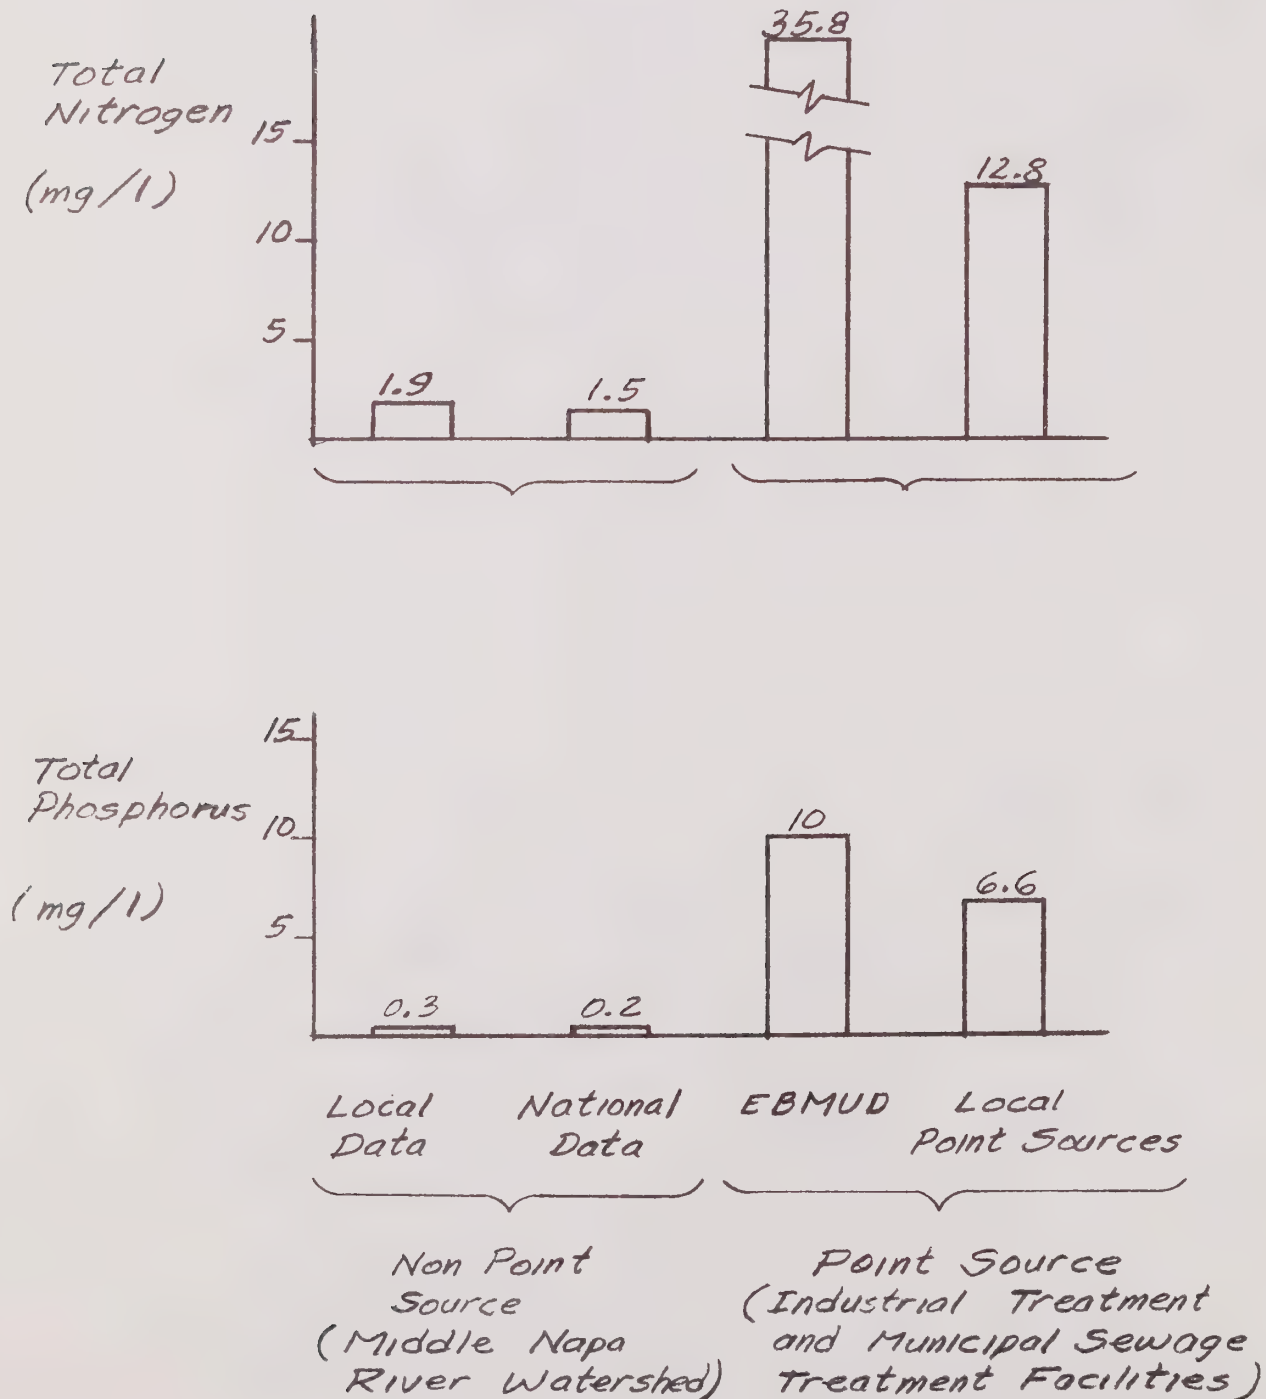 Total
Nitrogen
(mg/l)
15
10
5
1.9
1.5
35.8
12.8
Total
Phosphorus
(mg/l)
15
10
5
0.3
0.2
10
6.6
Local
Data
National
Data
EBMUD
Local
Point Sources
Non Point
Source
(Middle Napa
River Watershed)
Point Source
(Industrial Treatment
and Municipal Sewage
Treatment Facilities)